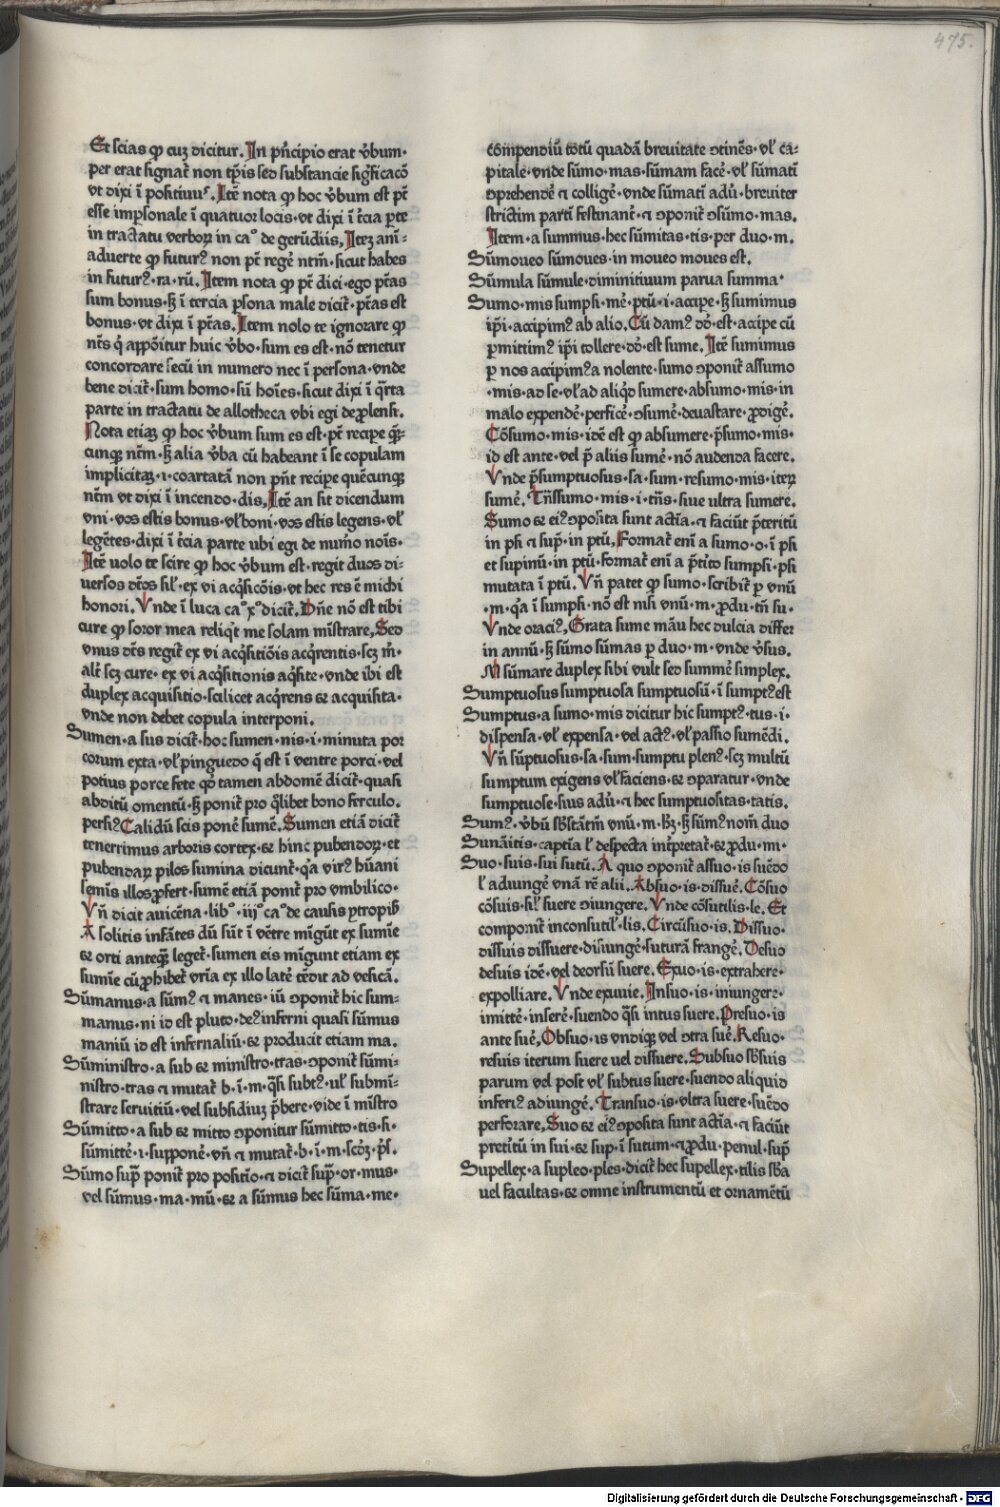 475.
Et scias ꝙ cuȝ dicitur. In pͥncipio erat v̓bum·
per erat signat᷑ non tp̄is sed substancie sig̃ficacō
vt dixi ī positiuuꝰ. Itē nota ꝙ hoc v̓bum est pt̄
esse imꝑsonale ī quatuor locis· vt dixi ī t̓cia ꝑte
in tractatu verboꝝ in caº de gerūdijs, Iteȝ anī⸗
aduerte ꝙ futurꝰ non pt̄ regē ntm̄· sicut habes
in futurꝰ· ra· rū. Item nota ꝙ pt̄ dici· ego pt̄as
sum bonus· ꜩ ī tercia ꝑsona male dicit᷑· pt̄as est
bonus· vt dixi ī pt̄as. Item nolo te ignorare ꝙ
nt̄s q̓ appōitur huic v̓bo· sum es est· nō tenetur
concordare secū in numero nec ī persona· vnde
bene dicit᷑· sum homo· sū hoīes· sicut dixi ī q̄rta
parte in tractatu de allotheca vbi egi de ꝓlensi.
Nota etiaȝ ꝙ hoc v̓bum sum es est· pt̄ recipe q̄⸗
cunqȝ ntm̄· ꜩ alia v̓ba cū habeant ī se copulam
implicitaȝ· i· coartatā non pn̄t recipe quēcunqȝ
ntm̄ vt dixi ī incendo· dis, Itē an sit dicendum
vni· vos estis bonus· vl̓ boni· vos estis legens· vl̓
legētes· dixi ī t̓cia parte ubi egi de num̓o noīs·
Itē uolo te scire ꝙ hoc v̓bum est· regit duos di⸗
uersos dt̄os sil̓· ex vi acq̓sicōis· vt hec res ē michi
honori. Vnde ī luca caº xº dicit᷑. Dn̄e nō est tibi
cure ꝙ soror mea reliqͥt me solam mīstrare, Sed
vnus dt̄s regit᷑ ex vi acq̓sitiōis acq̓rentis· scȝ m̓·
alt̓ scȝ cure· ex vi acq̓sitionis aq̓site· vnde ibi est
duplex acquisitio· scilicet acq̓rens ⁊ acquisita·
vnde non debet copula interponi.
Sumen· a sus dicit᷑· hoc sumen· nis· i· minuta por
corum exta· vl̓ pinguedo q̄ est ī ventre porci· vel
potius porce fete qd̓ tamen abdomē dicit᷑· quasi
abditū omentū· ꜩ ponit᷑ pro q̓libet bono ferculo.
persiꝰ Calidū scis ponē sumē. Sumen etiā dicit᷑
tenerrimus arboris cortex· ⁊ hinc pubendoꝝ· et
pubendaꝝ pilos sumina dicunt᷑· q̓a virꝰ hūani
semīs illos ꝓfert· sumē etiā ponit᷑ pro vmbilico·
Vn̄ dicit auicēna· libº· iijº caº de causis ꝓtropisb̓
A solitis infātes dū sūt ī vētre mīgūt ex sumīe
⁊ orti anteqȝ leget᷑· sumen eis mīgunt etiam ex
sumīe cū ꝓhibet᷑ vrīa ex illo latē tēdit ad vesicā.
Sūmanus· a sūmꝰ ⁊ manes· iū ꝯponit᷑ hic sum⸗
manus· ni id est pluto· deꝰ inferni quasi sūmus
maniū id est infernaliū· ⁊ producit etiam ma.
Sūministro· a sub ⁊ ministro· tras· ꝯponit᷑ sūmi⸗
nistro· tras ⁊ mutat᷑ b· ī· m· q̄si subtꝰ· ul̓ submī⸗
strare seruitiū· vel subsidiuȝ p̄bere· vide ī mīstro
Sūmitto· a sub ⁊ mitto ꝯponitur sūmitto· tis· si·
sūmittē· i· supponē· vn̄ ⁊ mutat᷑ b· ī· m· scd̓ȝ p̓s.
Sūmo sup̄ ponit᷑ pro positio· ⁊ dicit᷑ sup̄· or· mus·
vel sūmus· ma· mū· ⁊ a sūmus hec sūma· me·
cōmpendiū totū quadā breuitate ꝯtinēs· vl̓ ca⸗
pitale· vnde sūmo· mas· sūmam facē· vl̓ sūmatī
ꝯprehendē ⁊ colligē· vnde sūmatī adū· breuiter
strictim partī festinant᷑· ⁊ ꝯponit᷑ ꝯsūmo· mas.
Item· a summus· hec sūmitas· tis· per duo· m.
Sūmoueo sūmoues· in moueo moues est.
Sūmula sūmule· diminitiuum parua summa·
Sumo· mis sumpsi· mē· ptū· i· accipe· ꜩ sumimus
ip̄i· accipimꝰ ab alio. Cū damꝰ dō· est· accipe cū
ꝑmittimꝰ ip̄i tollere· dō· est sume. Itē sumimus
ꝑ nos accipimꝰ a nolente· sumo ꝯponit᷑ assumo
·mis· ad se· vl̓ ad aliqd̓ sumere· absumo· mis· in
malo expendē· perficē· ꝯsumē· deuastare· ꝓdigē.
Cōsumo· mis· idē est ꝙ absumere· p̄sumo· mis·
id est ante· vel p̄ aliis sumē· nō audenda facere.
Vnde p̄sumptuosus· sa· sum· resumo· mis· iteꝝ
sumē. Tn̄ssumo· mis· i· tn̄s· siue ultra sumere.
Sumo ⁊ eiꝰ ꝯposita sunt actīa· ⁊ faciūt p̄teritū
in psi ⁊ sup̄· in ptū, Format᷑ enī a sumo· o· ī psi
et supinū· in ptū· format᷑ enī a p̄t̓ito sumpsi· psi
mutata ī ptū. Vn̄ patet ꝙ sumo· scribit᷑ ꝑ vnū
·m· q̓a ī sumpsi· nō est nisi vnū· m· ꝓdu· tn̄ su·
Vnde oraciꝰ, Grata sume māu hec dulcia differ
in annū· ꜩ sūmo sūmas ꝑ duo· m· vnde v̓sus.
M̄ sūmare duplex sibi vult sed summē simplex.
Sumptuosus sumptuosa sumptuosū· ī sumptꝰ est
Sumptus· a sumo· mis dicitur hic sumptꝰ· tus· i·
dispensa· vl̓ expensa· vel actꝰ· vl̓ passio sumēdi.
Vn̄ sūptuosus· sa· sum· sumptu plenꝰ· scȝ multū
sumptum exigens vl̓ faciens· ⁊ ꝯparatur· vnde
sumptuose· sius adū· ⁊ hec sumptuositas· tatis.
Sumꝰ· v̓bū sb̄stātm̄ vnū· m· hȝ· ꜩ sūmꝰ nom̄ duo
Sunāitis· captīa l̓ despecta int̓pretat᷑· ⁊ ꝓdu· mi·
Suo· suis· sui sutū. A quo ꝯponit᷑ assuo· is suēdo
l̓ adiungē vnā rē alii. Absuo· is· dissuē. Cōsuo
cōsuis· sil̓ suere ꝯiungere. Vnde cōsutilis· le. Et
componit᷑ inconsutil̓· lis. Circūsuo· is. Dissuo·
dissuis dissuere· disiungē· suturā frangē. Desuo
desuis idē· vel deorsū suere. Exuo· is· extrahere·
expolliare. Vnde exuuie. Insuo· is· iniungere·
imittē· inserē· suendo q̄si intus suere. Presuo· is
ante suē, Obsuo· is vndiqȝ vel ꝯtra suē. Resuo·
resuis iterum suere uel dissuere. Subsuo sb̄suis
parum vel post vl̓ subtus suere· suendo aliquid
inferiꝰ adiungē. Transuo· is· vltra suere· suēdo
perforare, Suo ⁊ eiꝰ ꝯposita sunt actīa· ⁊ faciūt
pretitū in sui· ⁊ sup· ī sutum· ⁊ ꝓdu· penul· sup̄
Supellex· a supleo· ples· dicit᷑ hec supellex· tilis sb̄a
uel facultas· ⁊ omne instrumentū et ornamētū
Digitalisierung gefördert durch die Deutsche Forschungsgemeinschaft - DFG